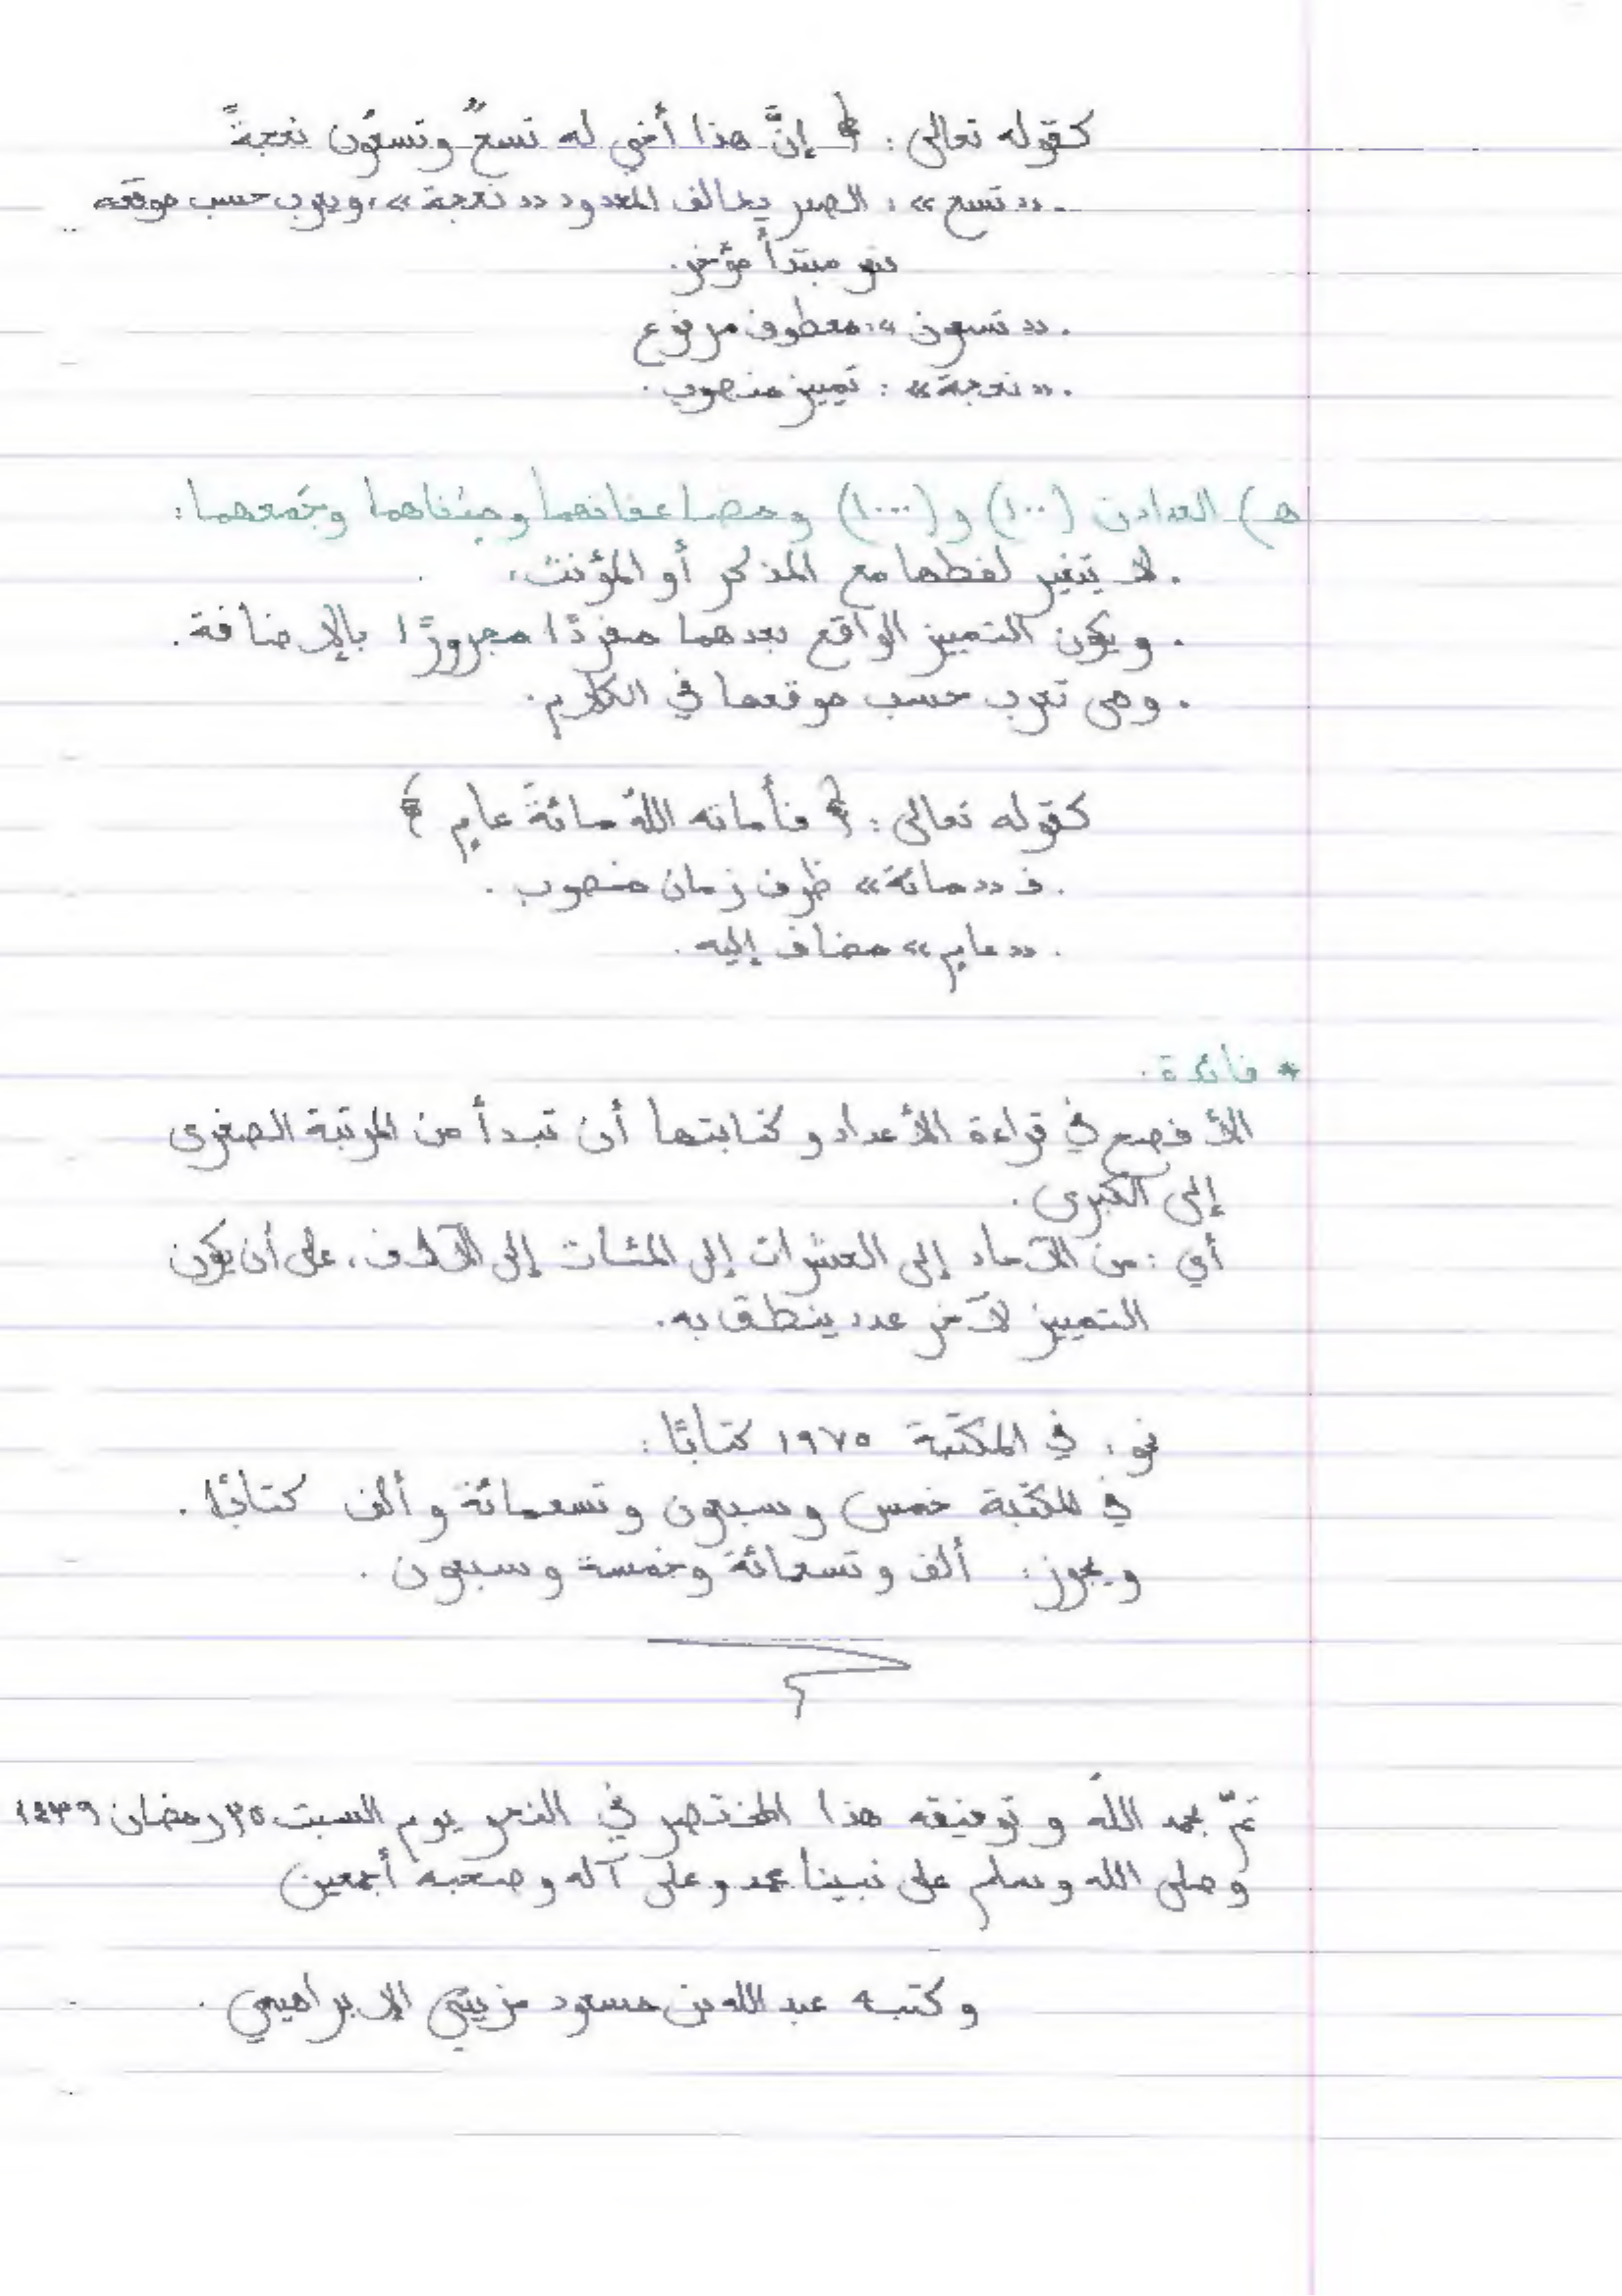 كقوله تعالى : ﴿ إنَّ هذا أخي له تسعٌ وتسعُون نعجةً
. «تسع» : الصدر يخالف المعدود «نعجة»، ويعرب حسب موقعه
فهو مبتدأ مؤخر.
. «تسعون» : معطوف مرفوع
. «نعجة» : تمييز منصوب .
هـ) العددان (١٠٠) و (١٠٠٠) ومضاعفاتهما ومثناهما وجَمعهما :
. لا يتغير لفظها مع المذكر أو المؤنث،
. ويكون التمييز الواقع بعدهما مفردًا مجرورًا بالإضافة .
. وهي تعرب حسب موقعها في الكلام .
كقوله تعالى : ﴿ فأماته اللهُ مائةَ عامٍ ﴾
. فـ «مائة» ظرف زمان منصوب .
. «عامٍ» مضاف إليه .
* فائدة .
الأفصح في قراءة الأعداد وكتابتها أن تبدأ من المرتبة الصغرى
إلى الكبرى .
أي : من الآحاد إلى العشرات إلى المئات إلى الآلاف ، على أن يكون
التمييز لآخر عدد ينطق به .
نحو : في المكتبة ١٩٧٥ كتابًا :
في المكتبة خمس وسبعون وتسعمائة وألف كتابًا .
ويجوز : ألف وتسعمائة وخمسة وسبعون .
تمّ بحمد اللهِ وتوفيقه هذا المختصر في النحو يوم السبت ٢٥ رمضان ١٤٣٩
وصلى الله وسلم على نبينا محمد وعلى آله وصحبه أجمعين
وكتبه عبد الله بن مسعود الإبراهيمي .